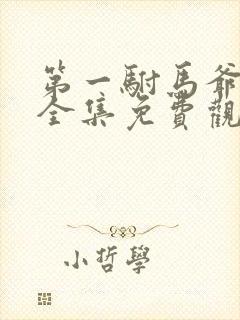 第一駙馬爺
全集免費觀
小哲學